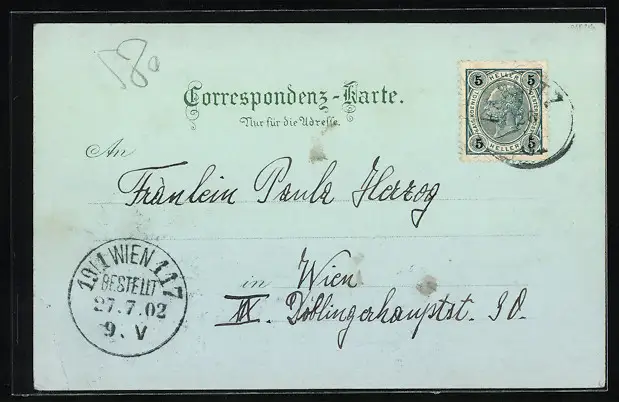 180
Correspondenz-Karte.
Nur für die Adresse.
5 HELLER 5
5 HELLER 5
An
Fräulein Paula Herzog
in Wien
XIX. Döblingerhauptst. 90.
19/1 WIEN 117
BESTELLT
27.7.02
9. V